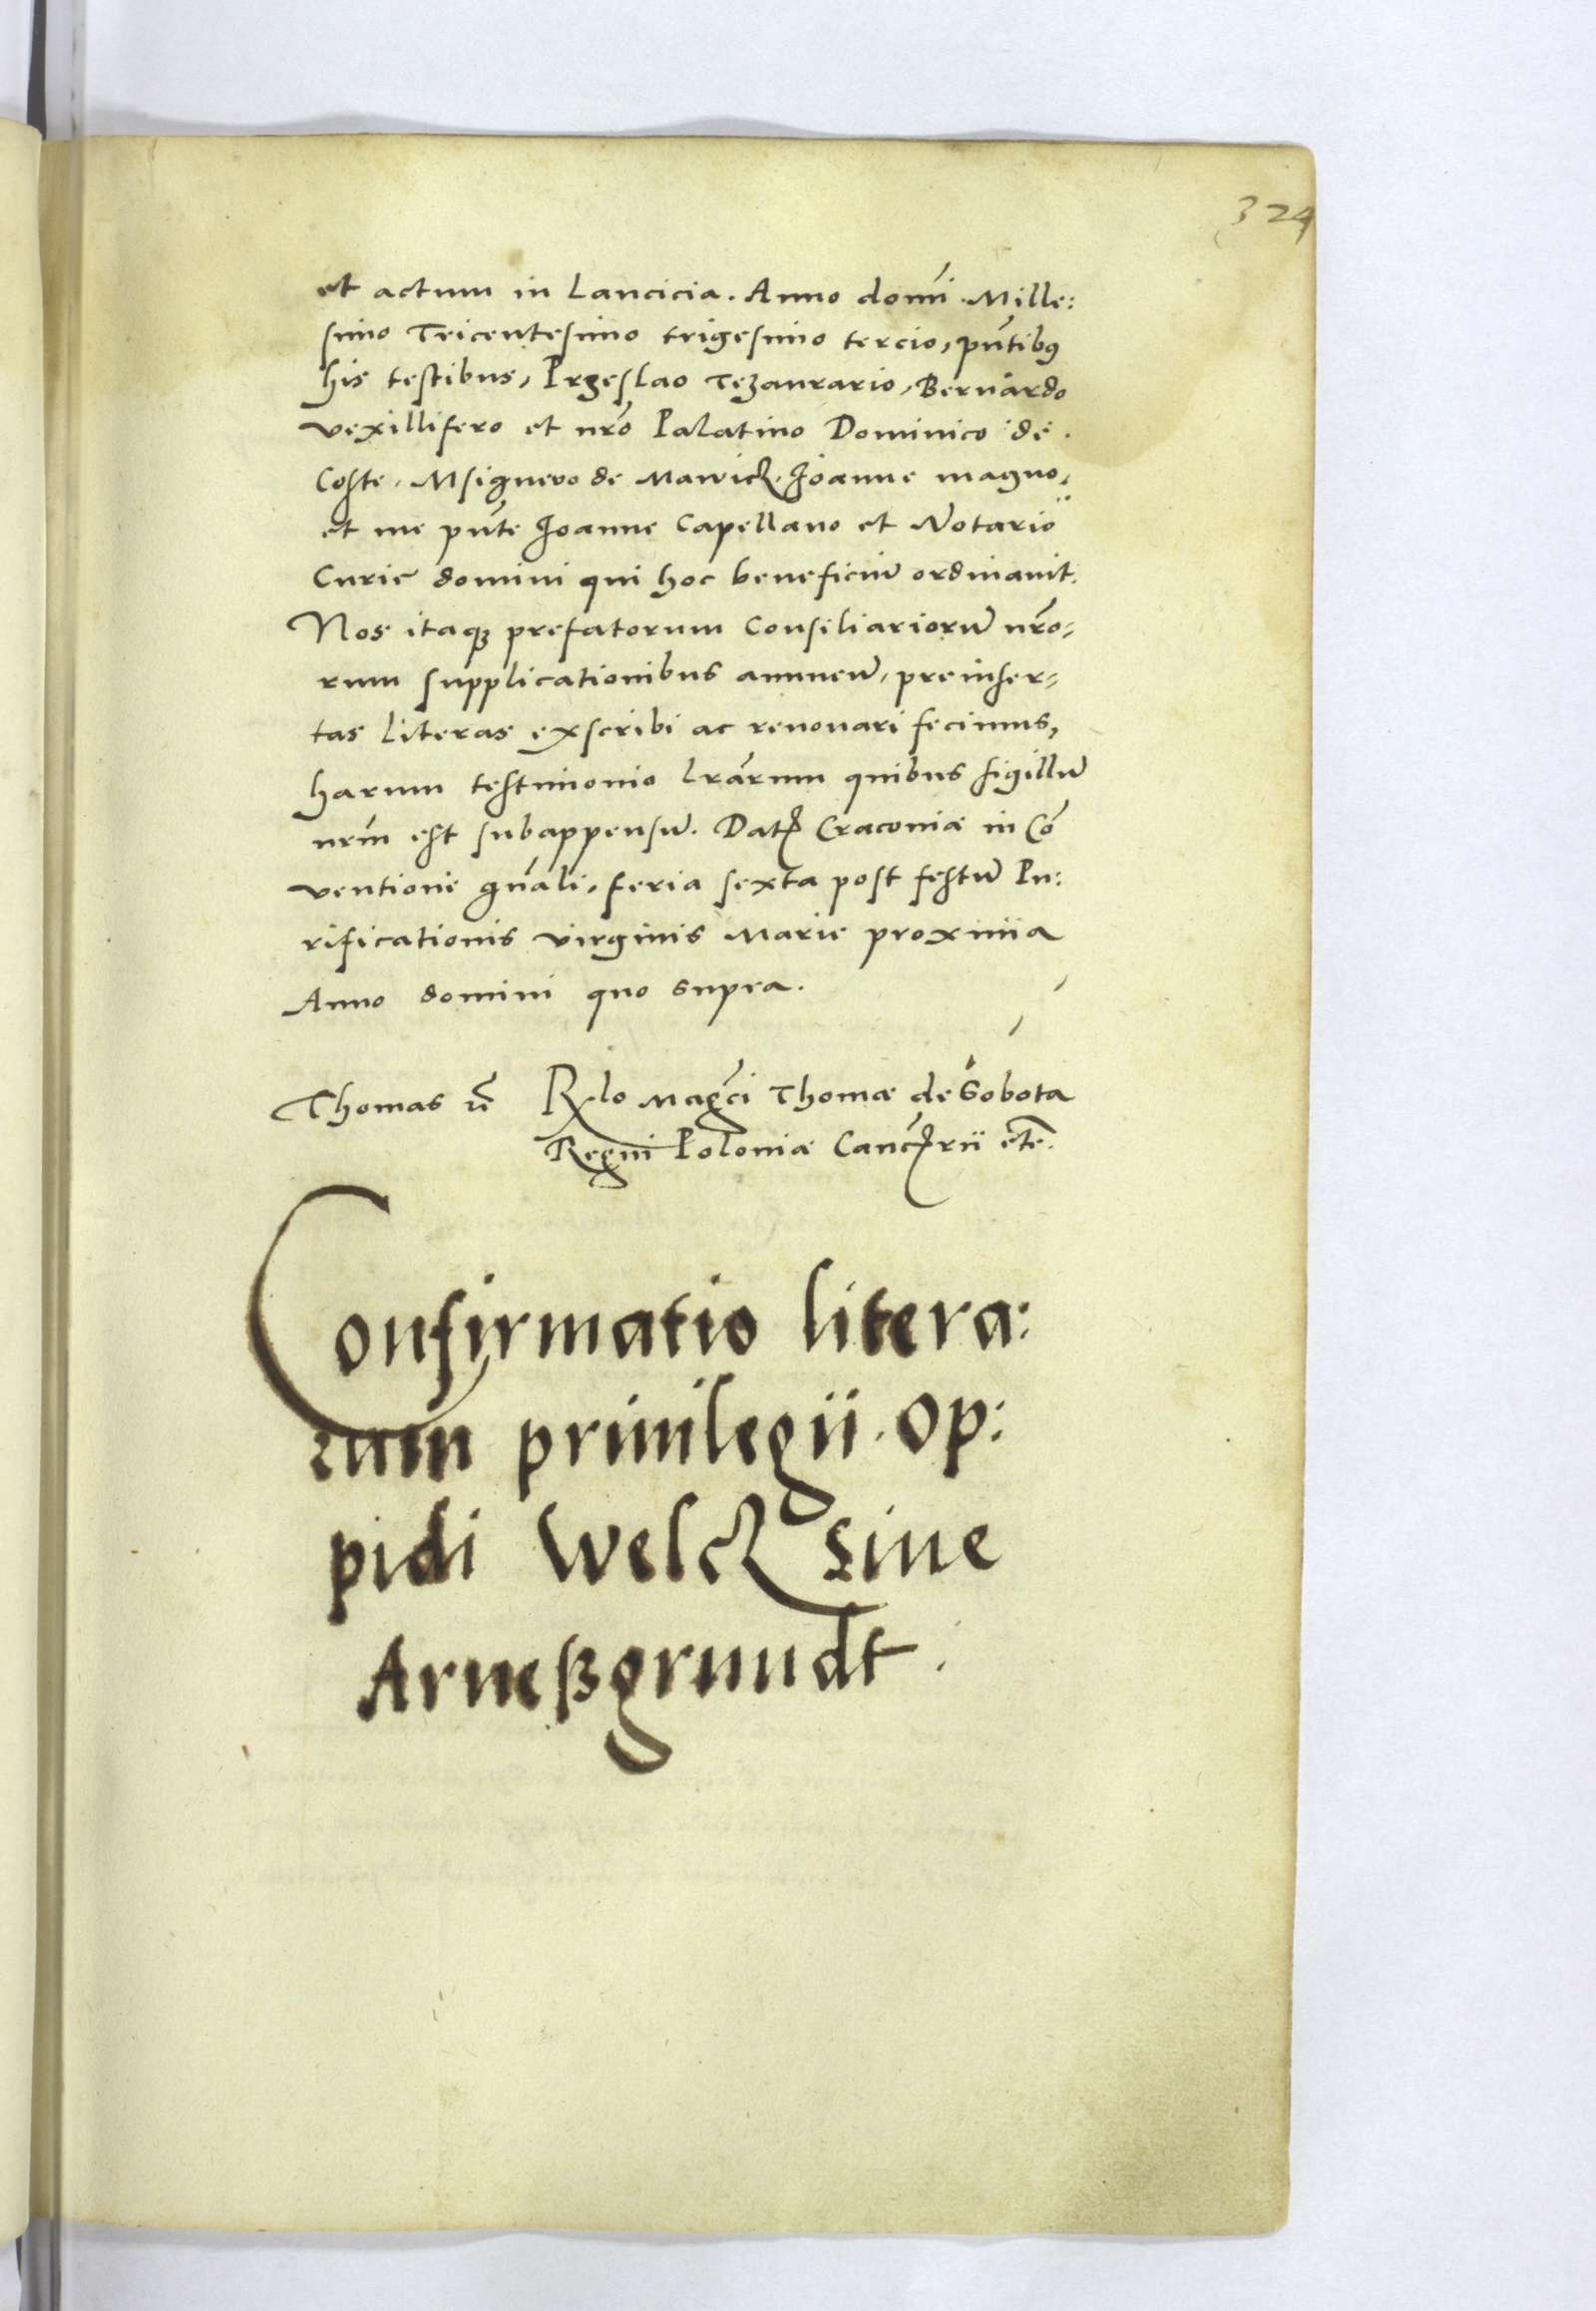 324
et actum in Lancicia. Anno domĩ Mille:
simo Tricentesimo trigesimo tercio, pñtibꝰ
his testibus, Przeslao Tezaurario, Bernardo
vexillifero et nrõ Palatino Dominico de
Coste. Msignevo de Mawicz. Joanne magno,
et me pñte Joanne Capellano et Notario
Curie domini qui hoc beneficiũ ordinavit.
Nos itaqꝫ prefatorum Consiliariorũ nrõ-
rum supplicationibus annueñ, preinser-
tas literas exscribi ac renouari fecimus,
harum testimonio lrãrum quibus sigillũ
nrm̃ est subappensũ. Datꝭ Cracoviæ in Cõ
ventione gñali, feria sexta post festũ Pu:
rificationis virginis Marie proxima
Anno domini quo supra.
Thomas Rlo Magci Thomæ de Sobota
Regni Poloniæ Cancrii etc.
Confirmatio litera:
rum priuilegii op:
pidi Welcz siue
Arneßgrundt.